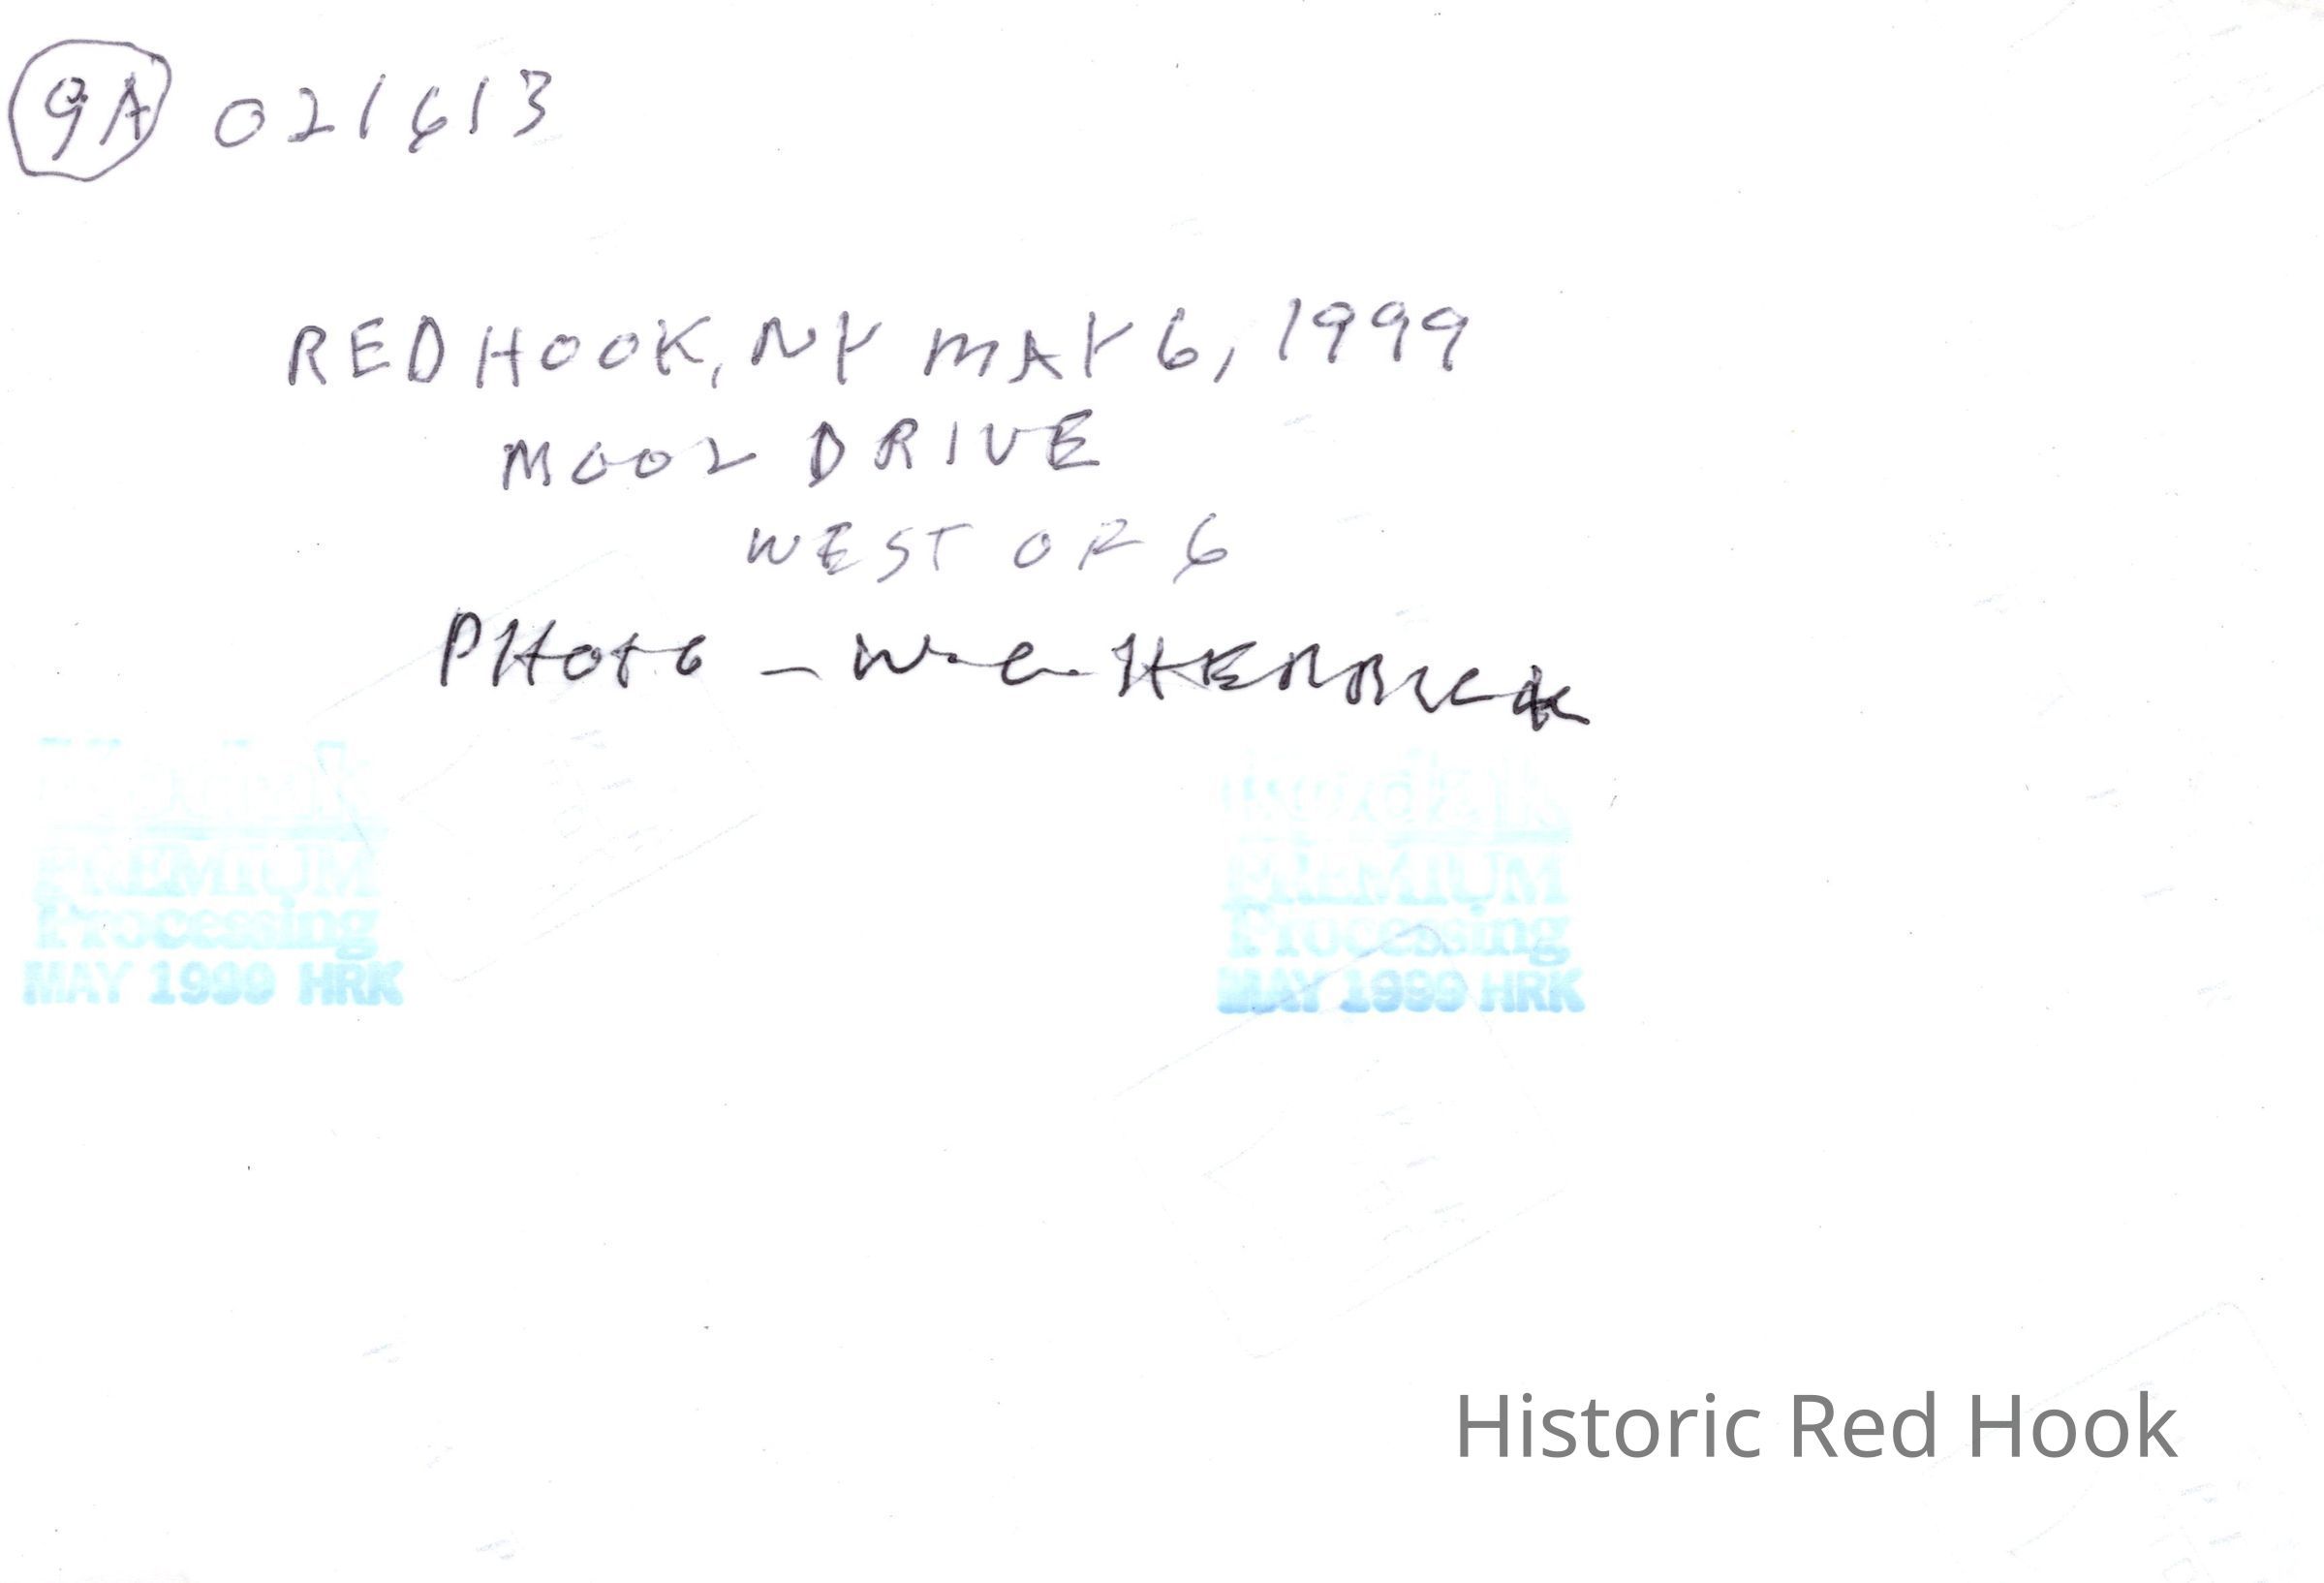 9A 021613
RED HOOK, NY MAY 6, 1999
MOOL DRIVE
WEST OF 6
PHOTO - W.C. HERRICK
Kodak Kodak
PREMIUM PREMIUM
Processing Processing
MAY 1999 HRK MAY 1999 HRK
Historic Red Hook